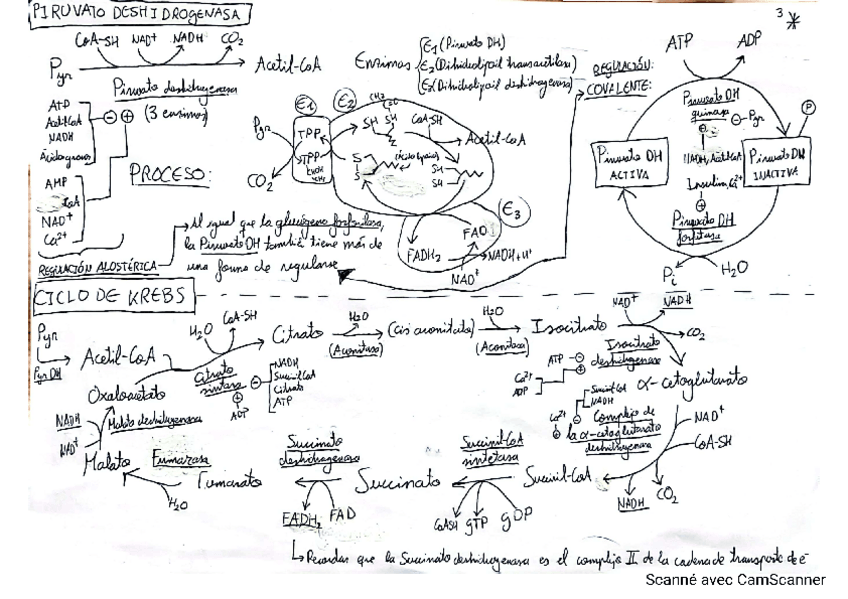 PIRUVATO DESHIDROGENASA
3 *
CoA-SH NAD⁺ NADH CO₂
Pyr → Acetil-CoA
Piruvato deshidrogenasa
(3 enzimas)
ATP
Acetil CoA
NADH
Ácidos grasos
⊖ ⊕
AMP
CoA
NAD⁺
Ca²⁺
REGULACIÓN ALOSTÉRICA
PROCESO:
Enzimas
E₁ (Piruvato DH)
E₂ (Dihidrolipoil transacetilasa)
E₃ (Dihidrolipoil deshidrogenasa)
E1 E2
Pyr
CO₂
TPP
TPP
SH SH
CoA-SH
Acetil-CoA
S
S
(Ácido lipoico)
SH
SH
E3
FAD
FADH₂
NADH + H⁺
NAD⁺
Al igual que la glucógeno fosforilasa,
la Piruvato DH también tiene más de
una forma de regularse
REGULACIÓN
COVALENTE:
ATP ADP
Piruvato DH
quinasa
⊖ Pyr
⊕
NADH, Acetil CoA
P
Piruvato DH
ACTIVA
Piruvato DH
INACTIVA
Insulina, Ca²⁺
⊕
Piruvato DH
fosfatasa
Pi H₂O
CICLO DE KREBS
Pyr
Pyr DH
Acetil-CoA
H₂O CoA-SH
Citrato
sintasa
⊖ NADH
Succinil CoA
Citrato
ATP
⊕
ADP
Citrato
H₂O
(Aconitasa)
(cis aconitato)
H₂O
(Aconitasa)
Isocitrato
NAD⁺ NADH
CO₂
Isocitrato
deshidrogenasa
ATP ⊖
⊕
Ca²⁺
ADP
α-cetoglutarato
Succinil CoA
NADH
⊖
Ca²⁺
⊕
Complejo de
la α-cetoglutarato
deshidrogenasa
NAD⁺
CoA-SH
NADH CO₂
Succinil-CoA
Succinil-CoA
sintetasa
CoASH GTP GDP
Succinato
Succinato
deshidrogenasa
FADH₂ FAD
Fumarato
Fumarasa
H₂O
Malato
Malato deshidrogenasa
NADH
NAD⁺
Oxaloacetato
Recordar que la Succinato deshidrogenasa es el complejo II de la cadena de transporte de e⁻
Scanné avec CamScanner